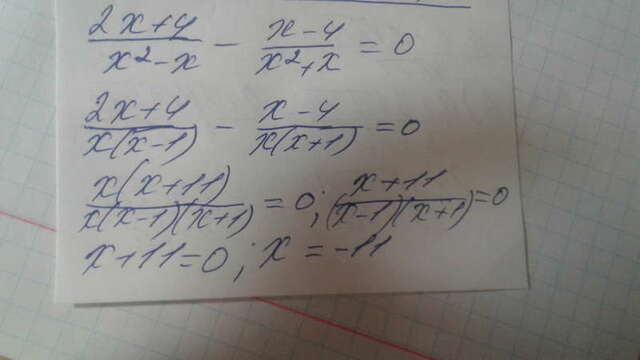 (2x+4)/(x²-x) - (x-4)/(x²+x) = 0
(2x+4)/(x(x-1)) - (x-4)/(x(x+1)) = 0
(x(x+11))/(x(x-1)(x+1)) = 0; (x+11)/((x-1)(x+1)) = 0
x+11=0; x = -11